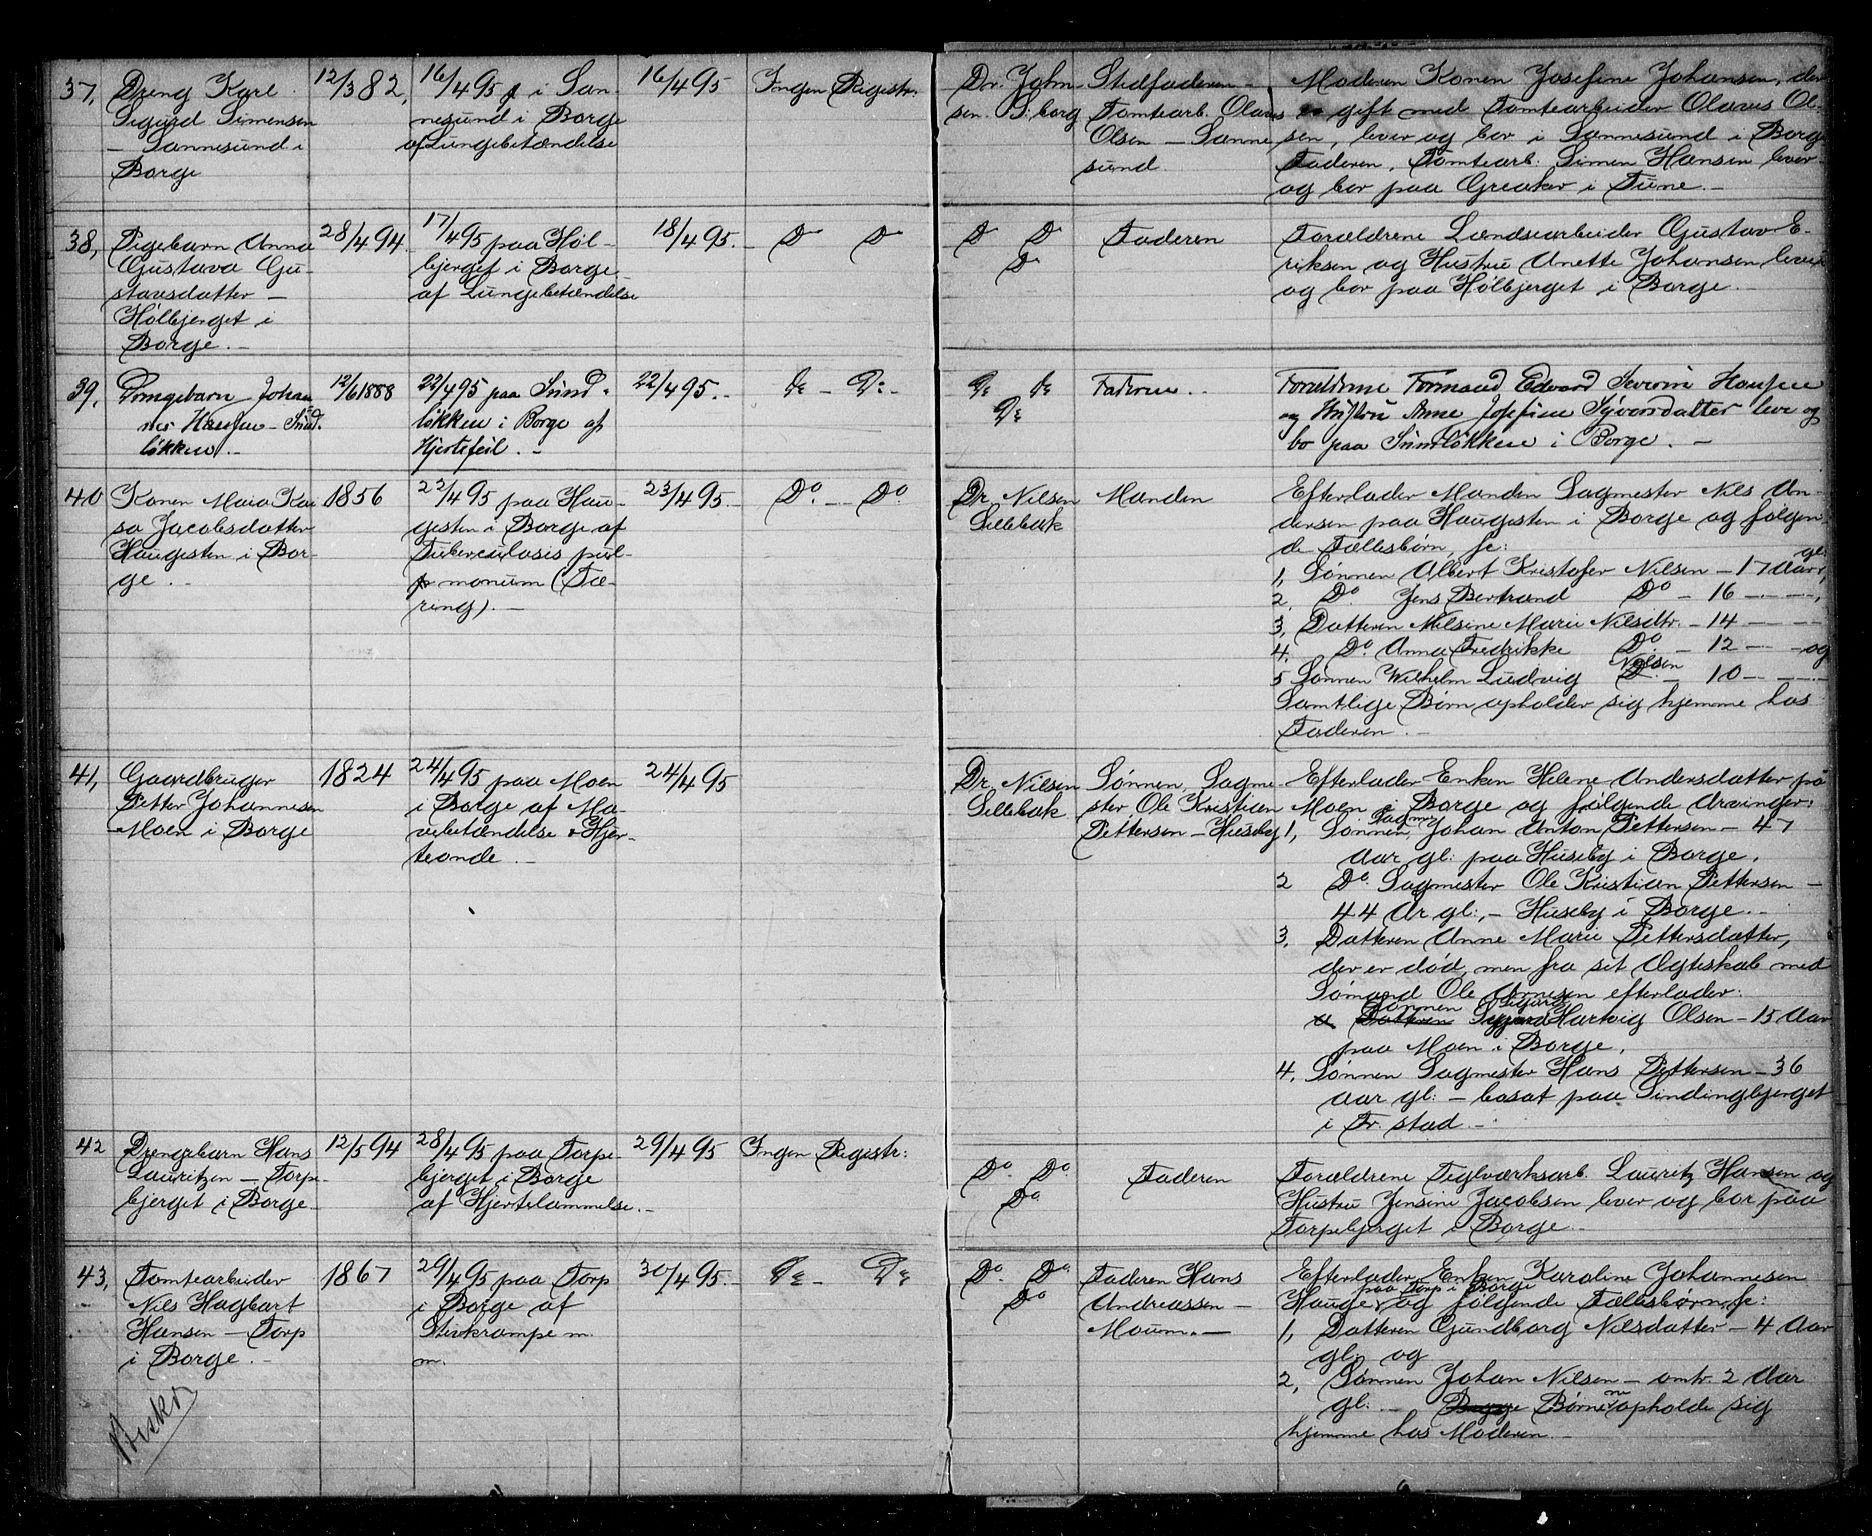 37, Dreng Karl
Sigurd Simensen
– Sannesund i
Borge
12/3 82,
16/4 95 i San-
nesund i Borge
af Lungebetændelse
16/4 95
Ingen Registr.
Dr. John-
sen. S.borg
Stedfaderen
Tomtearb. Olaves
Olsen – Sanne
sund.
Moderen Konen Josefine Johansen, der
gift med Tomtearbeider Olaves Ol-
sen, lever og bor i Sannesund i Borge
Faderen, Tomtearb. Simen Hansen lever
og bor paa Greaker i Tune. –
38, Pigebarn Anna
Gustava Gu-
stavsdatter –
Hølbjerget i
Borge. –
28/4 94.
17/4 95 paa Høl-
bjerget i Borge
af Lungebetændelse
18/4 95.
Do Do
Do Do
Do
Faderen
Forældrene Lændsearbeider Gustav E-
riksen og Hustru Anette Johansen lever
og bor paa Hølbjerget i Borge. –
39, Drengebarn Johan
nes Hansen – Sund-
løkken. –
12/6 1888
22/4 95 paa Sund-
løkken i Borge af
Hjertefeil. –
22/4 95. –
Do – Do –
Do Do
Do
Faderen. –
Forældrene Formand Edvard Severin Hansen
og Hustru Anne Josefine Syversdatter leve og
bo paa Sundløkken i Borge. –
40 Konen Maia Kai
sa Jacobsdatter
Haugesten i Bor-
ge. –
1856
22/4 95 paa Hau-
gesten i Borge af
Tuberculosis pul-
monum (Tæ-
ring). –
23/4 95.
Do. – Do.
Dr. Nilsen
Sellebak
Manden
Efterlader Manden Sagmester Nils An-
dersen paa Haugesten i Borge og følgen-
de Fællesbørn, fc:
1, Sønnen Albert Kristofer Nilsen – 17 Aar gl:,
2, Do. Jens Bertrand Do – 16 – – –,
3, Datteren Nilsine Marie Nilsdtr. – 14 – – –
4. Do. Anna Fredrikke Do. – 12 – – og
5 Sønnen Wilhelm Ludvig Nilsen – 10 – – –
Samtlige Børn opholder sig hjemme hos
Faderen. –
41, Gaardbruger
Petter Johannesen
Moen i Borge
1824
24/4 95 paa Moen
i Borge af Ma-
vebetændelse & Hjer-
teonde. –
24/4 95
Dr. Nilsen
Sellebak
Sønnen, Sagme-
ster Ole Kristian
Pettersen – Huseby
Efterlader Enken Helene Andersdatter på
Moen i Borge og følgende Arvinger:
1, Sønnen, Sagm. Johan Anton Pettersen – 47
Aar gl. paa Huseby i Borge.
2 Do. Sagmester Ole Kristian Pettersen –
44 Ar gl:, – Huseby i Borge. –
3, Datteren Anne Marie Pettersdatter,
der er død, men fra sit Ægteskab med
Sømand Ole Arnesen efterlader:
a. Datteren Sønnen Sigurd Hartvig Olsen – 15 Aar
paa Moen i Borge.
4. Sønnen Sagmester Hans Pettersen – 36
Aar gl: – bosat paa Sindingbjerget
i Fr. stad. –
42 Drengebarn Hans
Lauritzen – Torp-
bjerget i Borge.
12/5 94
28/4 95 paa Torpe-
bjerget i Borge
af Hjertelammelse. –
29/4 95
Ingen Registr:
Do. Do.
Do
Faderen
Forældrene Teglværksarb. Lauritz Hansen og
Hustru Jensine Jacobsen lever og bor paa
Torpebjerget i Borge. –
43, Tomtearbeider
Nils Hagbart
Hansen – Torp
i Borge. –
1867
29/4 95 paa Torp
i Borge af
Stivkrampe m.
m.
30/4 95. –
Do – Do
Do. Do.
Do
Faderen Hans
Andreassen –
Moum. –
Efterlader Enken Karoline Johannesen
Hauge paa Torp i Borge og følgende Fællesbørn, fc:
1, Datteren Gundborg Nilsdatter – 4 Aar
gl: og
2, Sønnen Johan Nilsen – omtr. 2 Aar
gl. – Begge Børnene opholde sig
hjemme hos Moderen. –